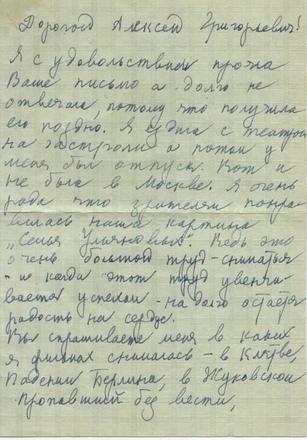 Дорогой Алексей Григорьевич!
Я с удовольствием прочла
Ваше письмо а долго не
отвечала, потому что получила
его поздно. Я ездила с театром
на гастроли а потом у
меня был отпуск. Вот и
не была в Москве. Я очень
рада что зрителям понра-
вилась наша картина
„Семья Ульяновых". Ведь это
очень большой труд - сниматься
- и когда этот труд увенчи-
вается успехом - надолго остаётся
радость на сердце.
Вы спрашиваете меня в каких
я фильмах снималась - в Клятве,
Падении Берлина, в Жуковском
Пропавший без вести,